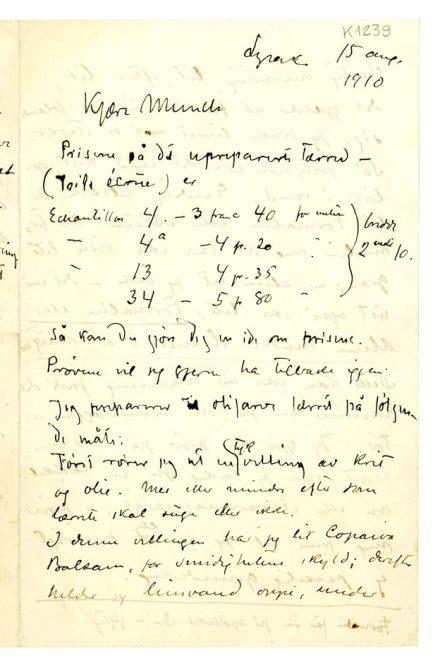 K1239
Lysaker 15 aug.
1910
Kjære Munch
Prisene på de upreparerte lærred –
(Toile écrue) er
Echantillon 4. – 3 franc 40 for metren
– 4a – 4 fr. 20 "
" 13 4 fr. 35
34 – 5 fr 80 "
bredde
2 m 10.
Så kan du gjøre dig en ide om prisene.
Prøvene vil jeg gjerne ha tilbake igjen.
Jeg preparerer oljefarve lærred på følgen-
de måte:
Først rører jeg ut en tyk velling av krit
og olie. Mer eller mindre efter som
lærredet skal suge eller ikke.
I denne vellingen har jeg lit Copaiva
Balsam, for smidighetens skyld; derefter
helder jeg limvand oppi, under